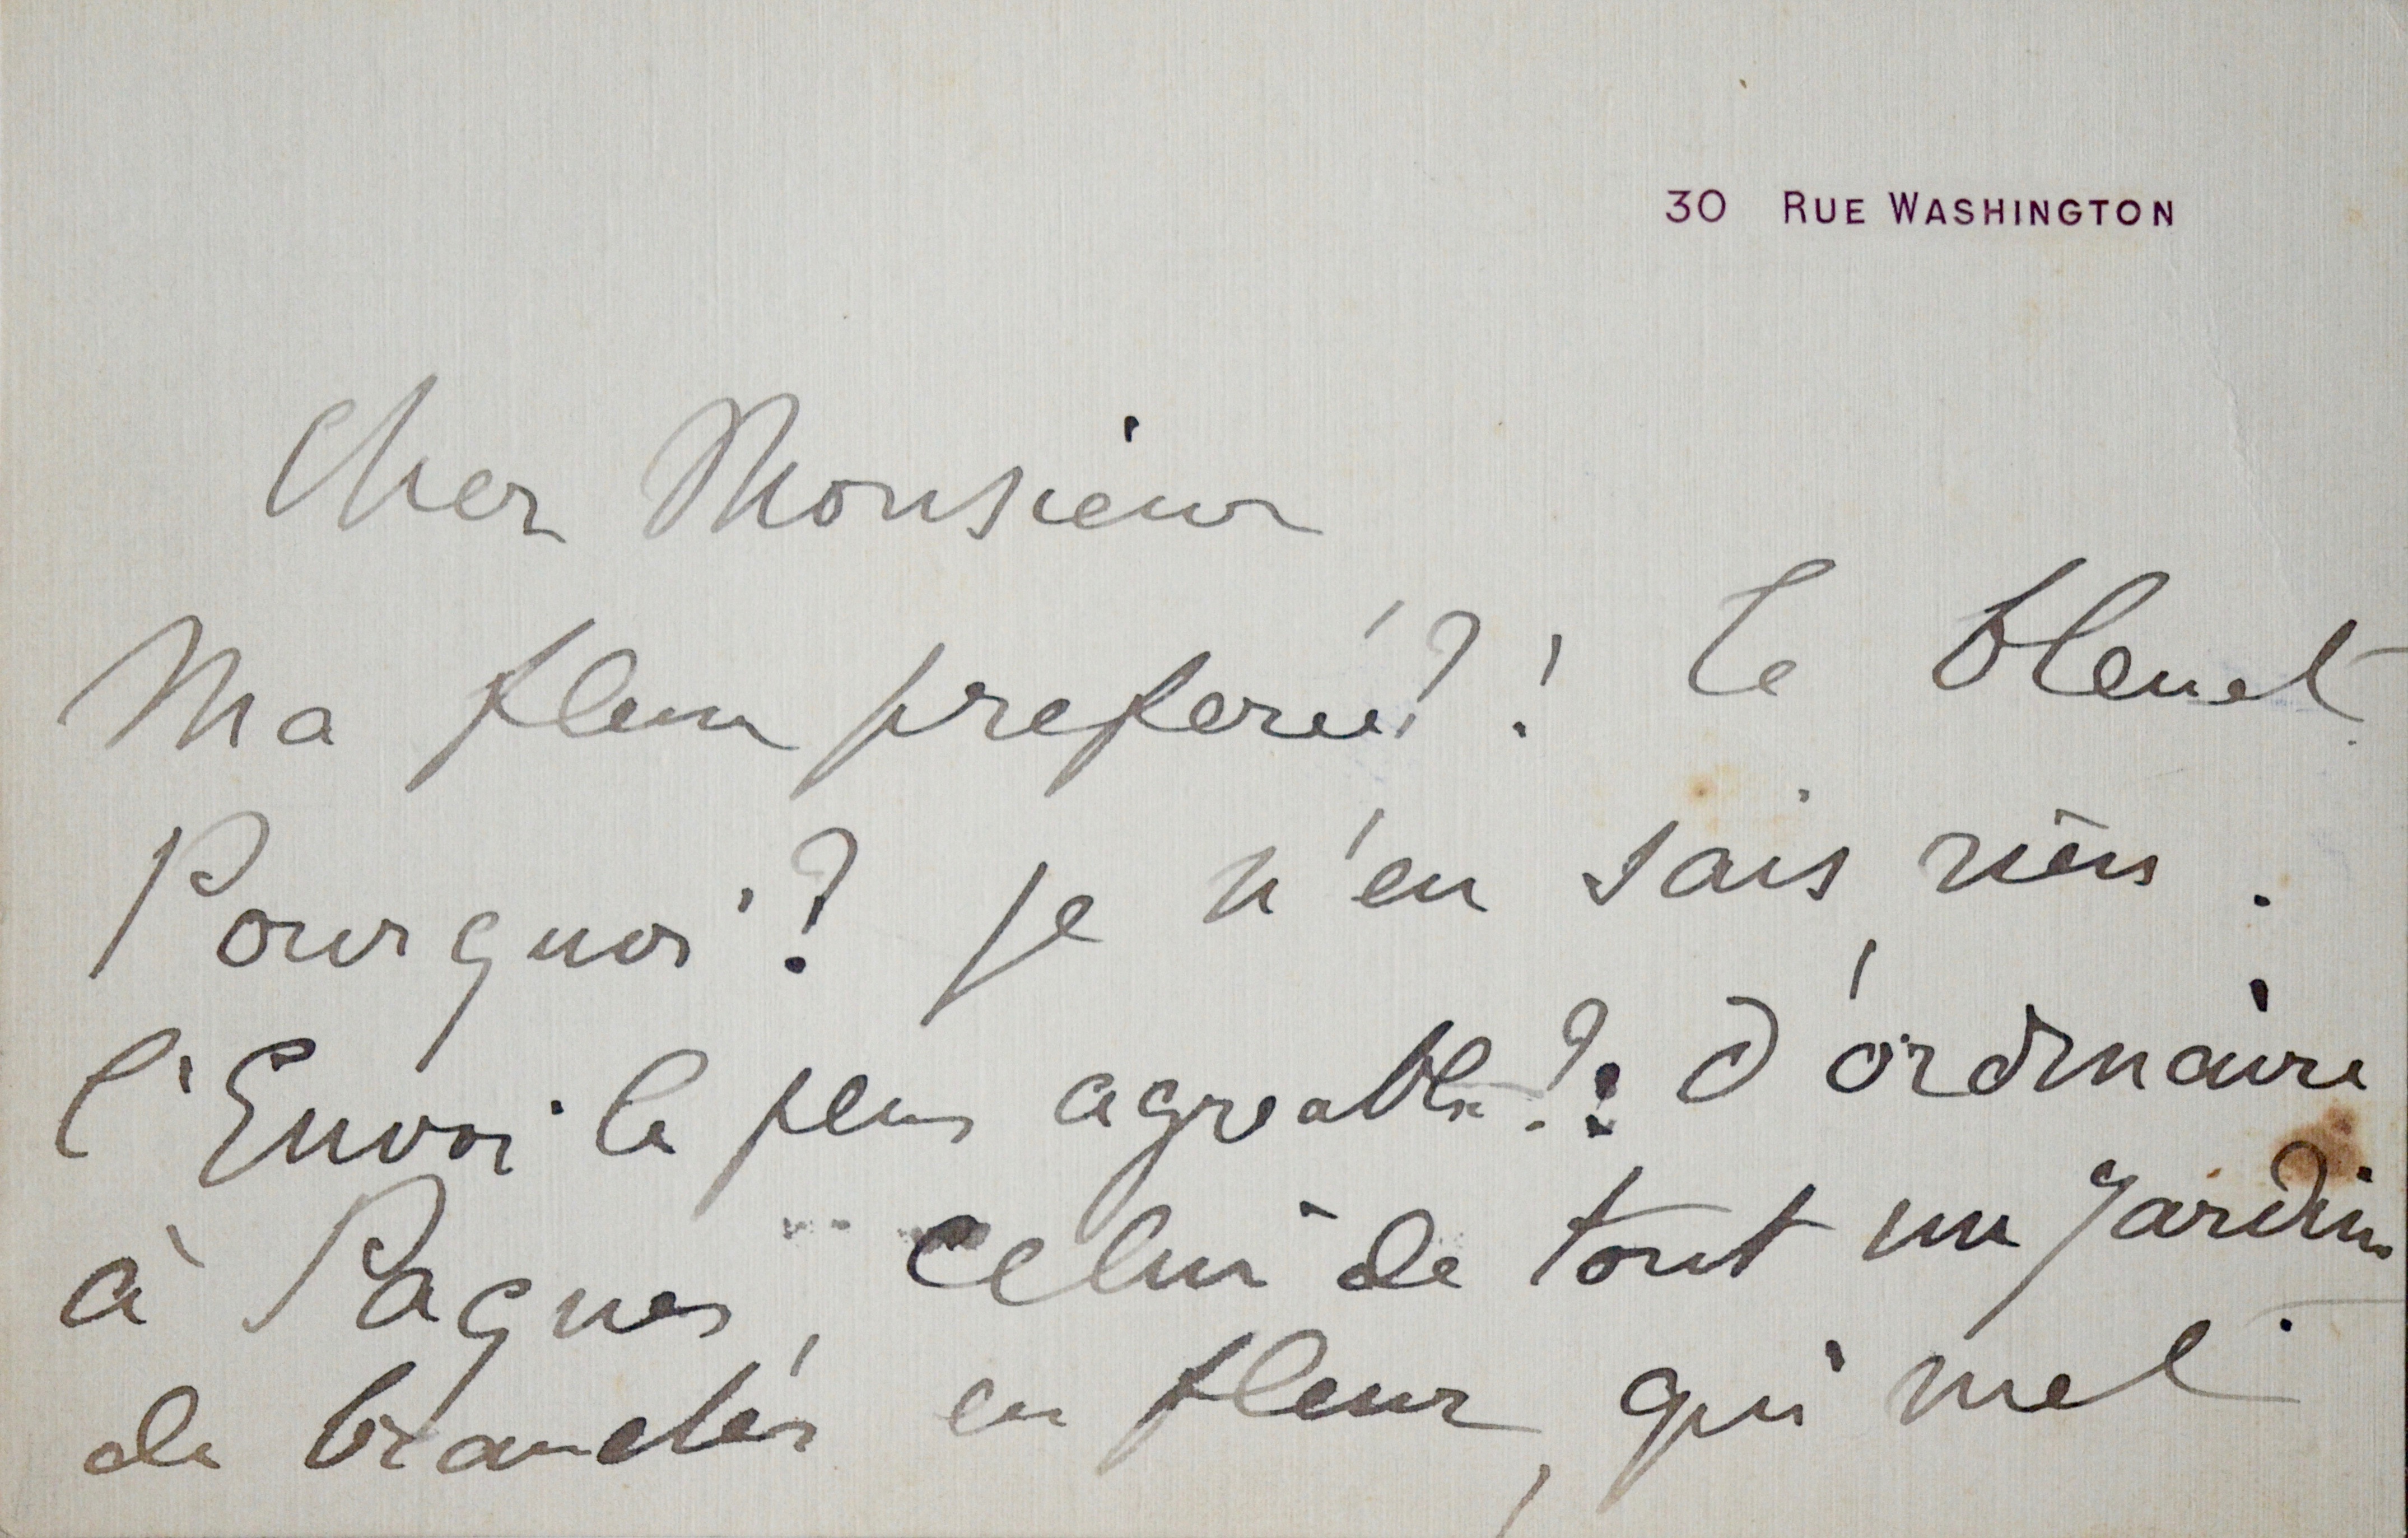 30 RUE WASHINGTON
Cher Monsieur
Ma fleur preferée?! Le bleuet.
Pourquoi? je n'en sais rien.
l'Envoi le plus agreable?: d'ordinaire
à Paques, celui de tout un jardin
de branches en fleur, qui met